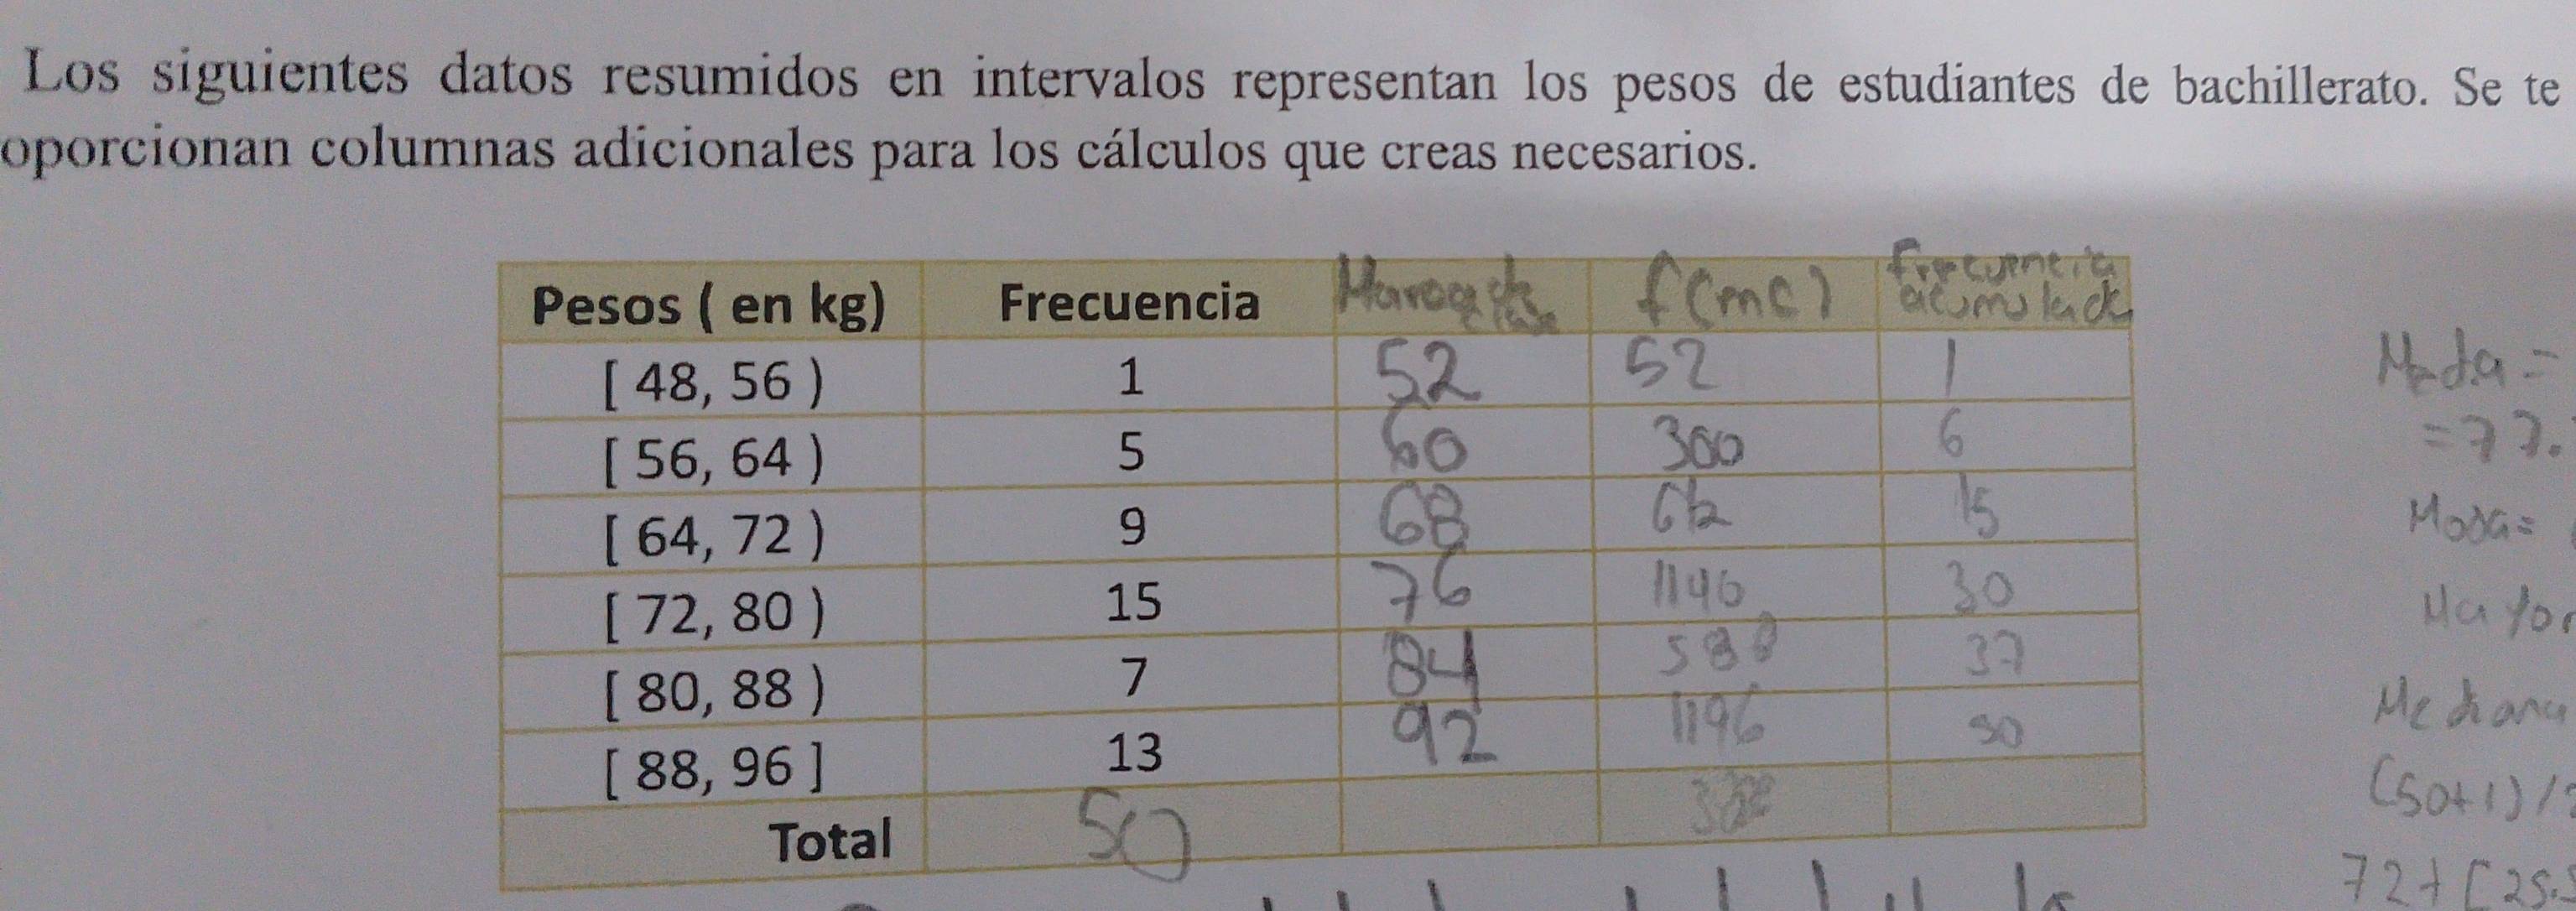 Los siguientes datos resumidos en intervalos representan los pesos de estudiantes de bachillerato. Se te
oporcionan columnas adicionales para los cálculos que creas necesarios.
Pesos ( en kg) Frecuencia Marca de clase f(mc) Frecuencia acumulada
[ 48, 56 ) 1 52 52 1
[ 56, 64 ) 5 60 300 6
[ 64, 72 ) 9 68 612 15
[ 72, 80 ) 15 76 1140 30
[ 80, 88 ) 7 84 588 37
[ 88, 96 ] 13 92 1196 50
Total 50
=77.
Moda=
Mayor
Mediana
(50+1)/
72+[25.5